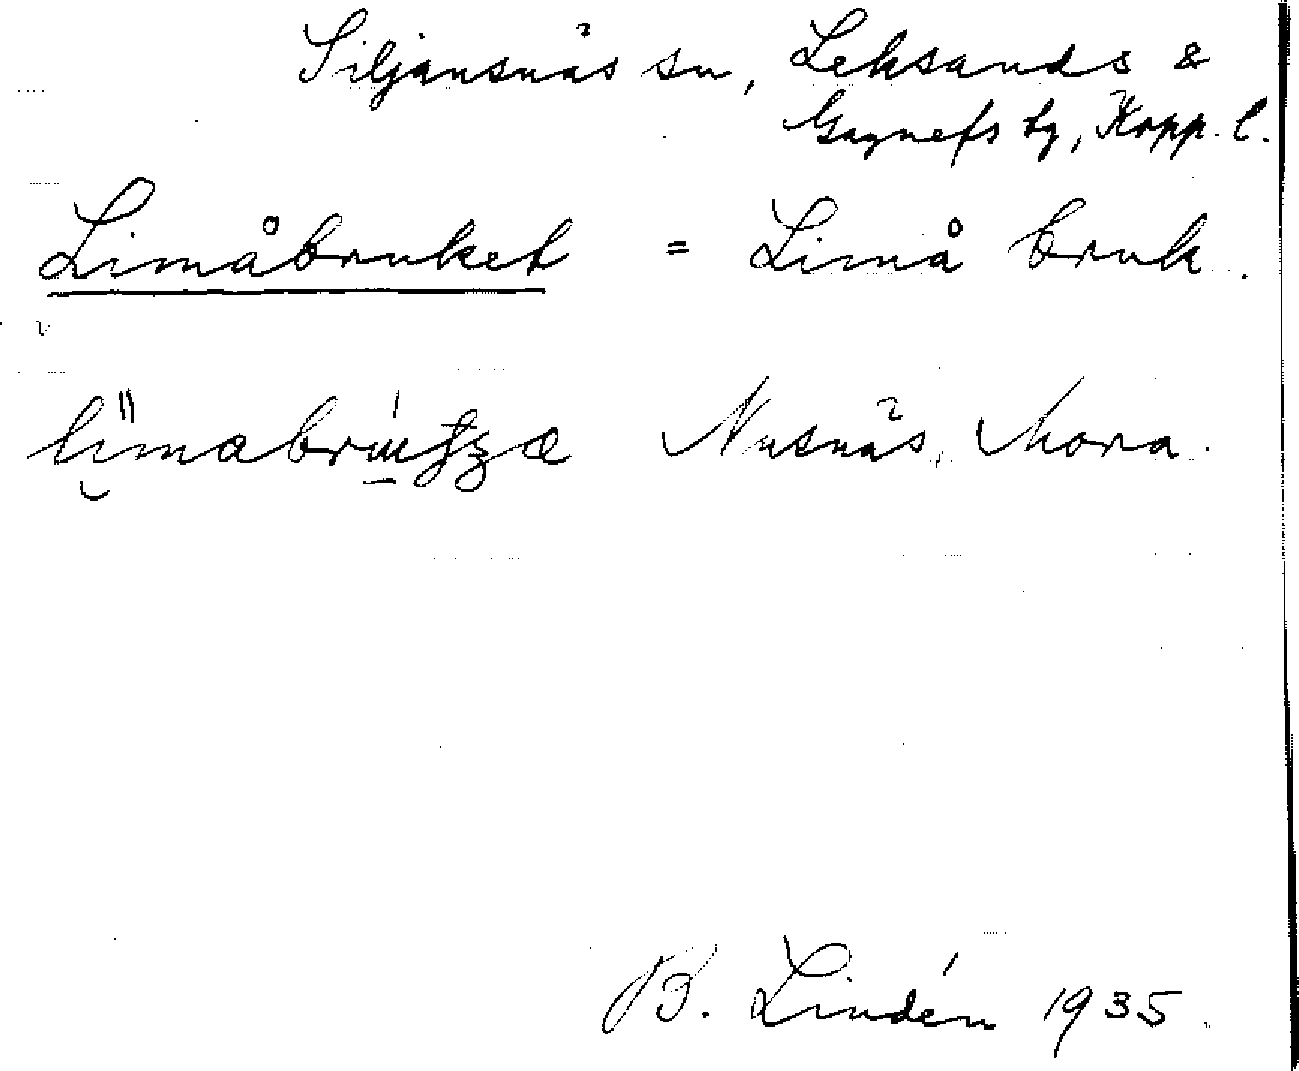 Siljansnäs sn, Leksands &
Gagnefs tg, Kopp. l.
Limåbruket = Limå bruk.
Nusnäs, Mora.
B. Lindén 1935.